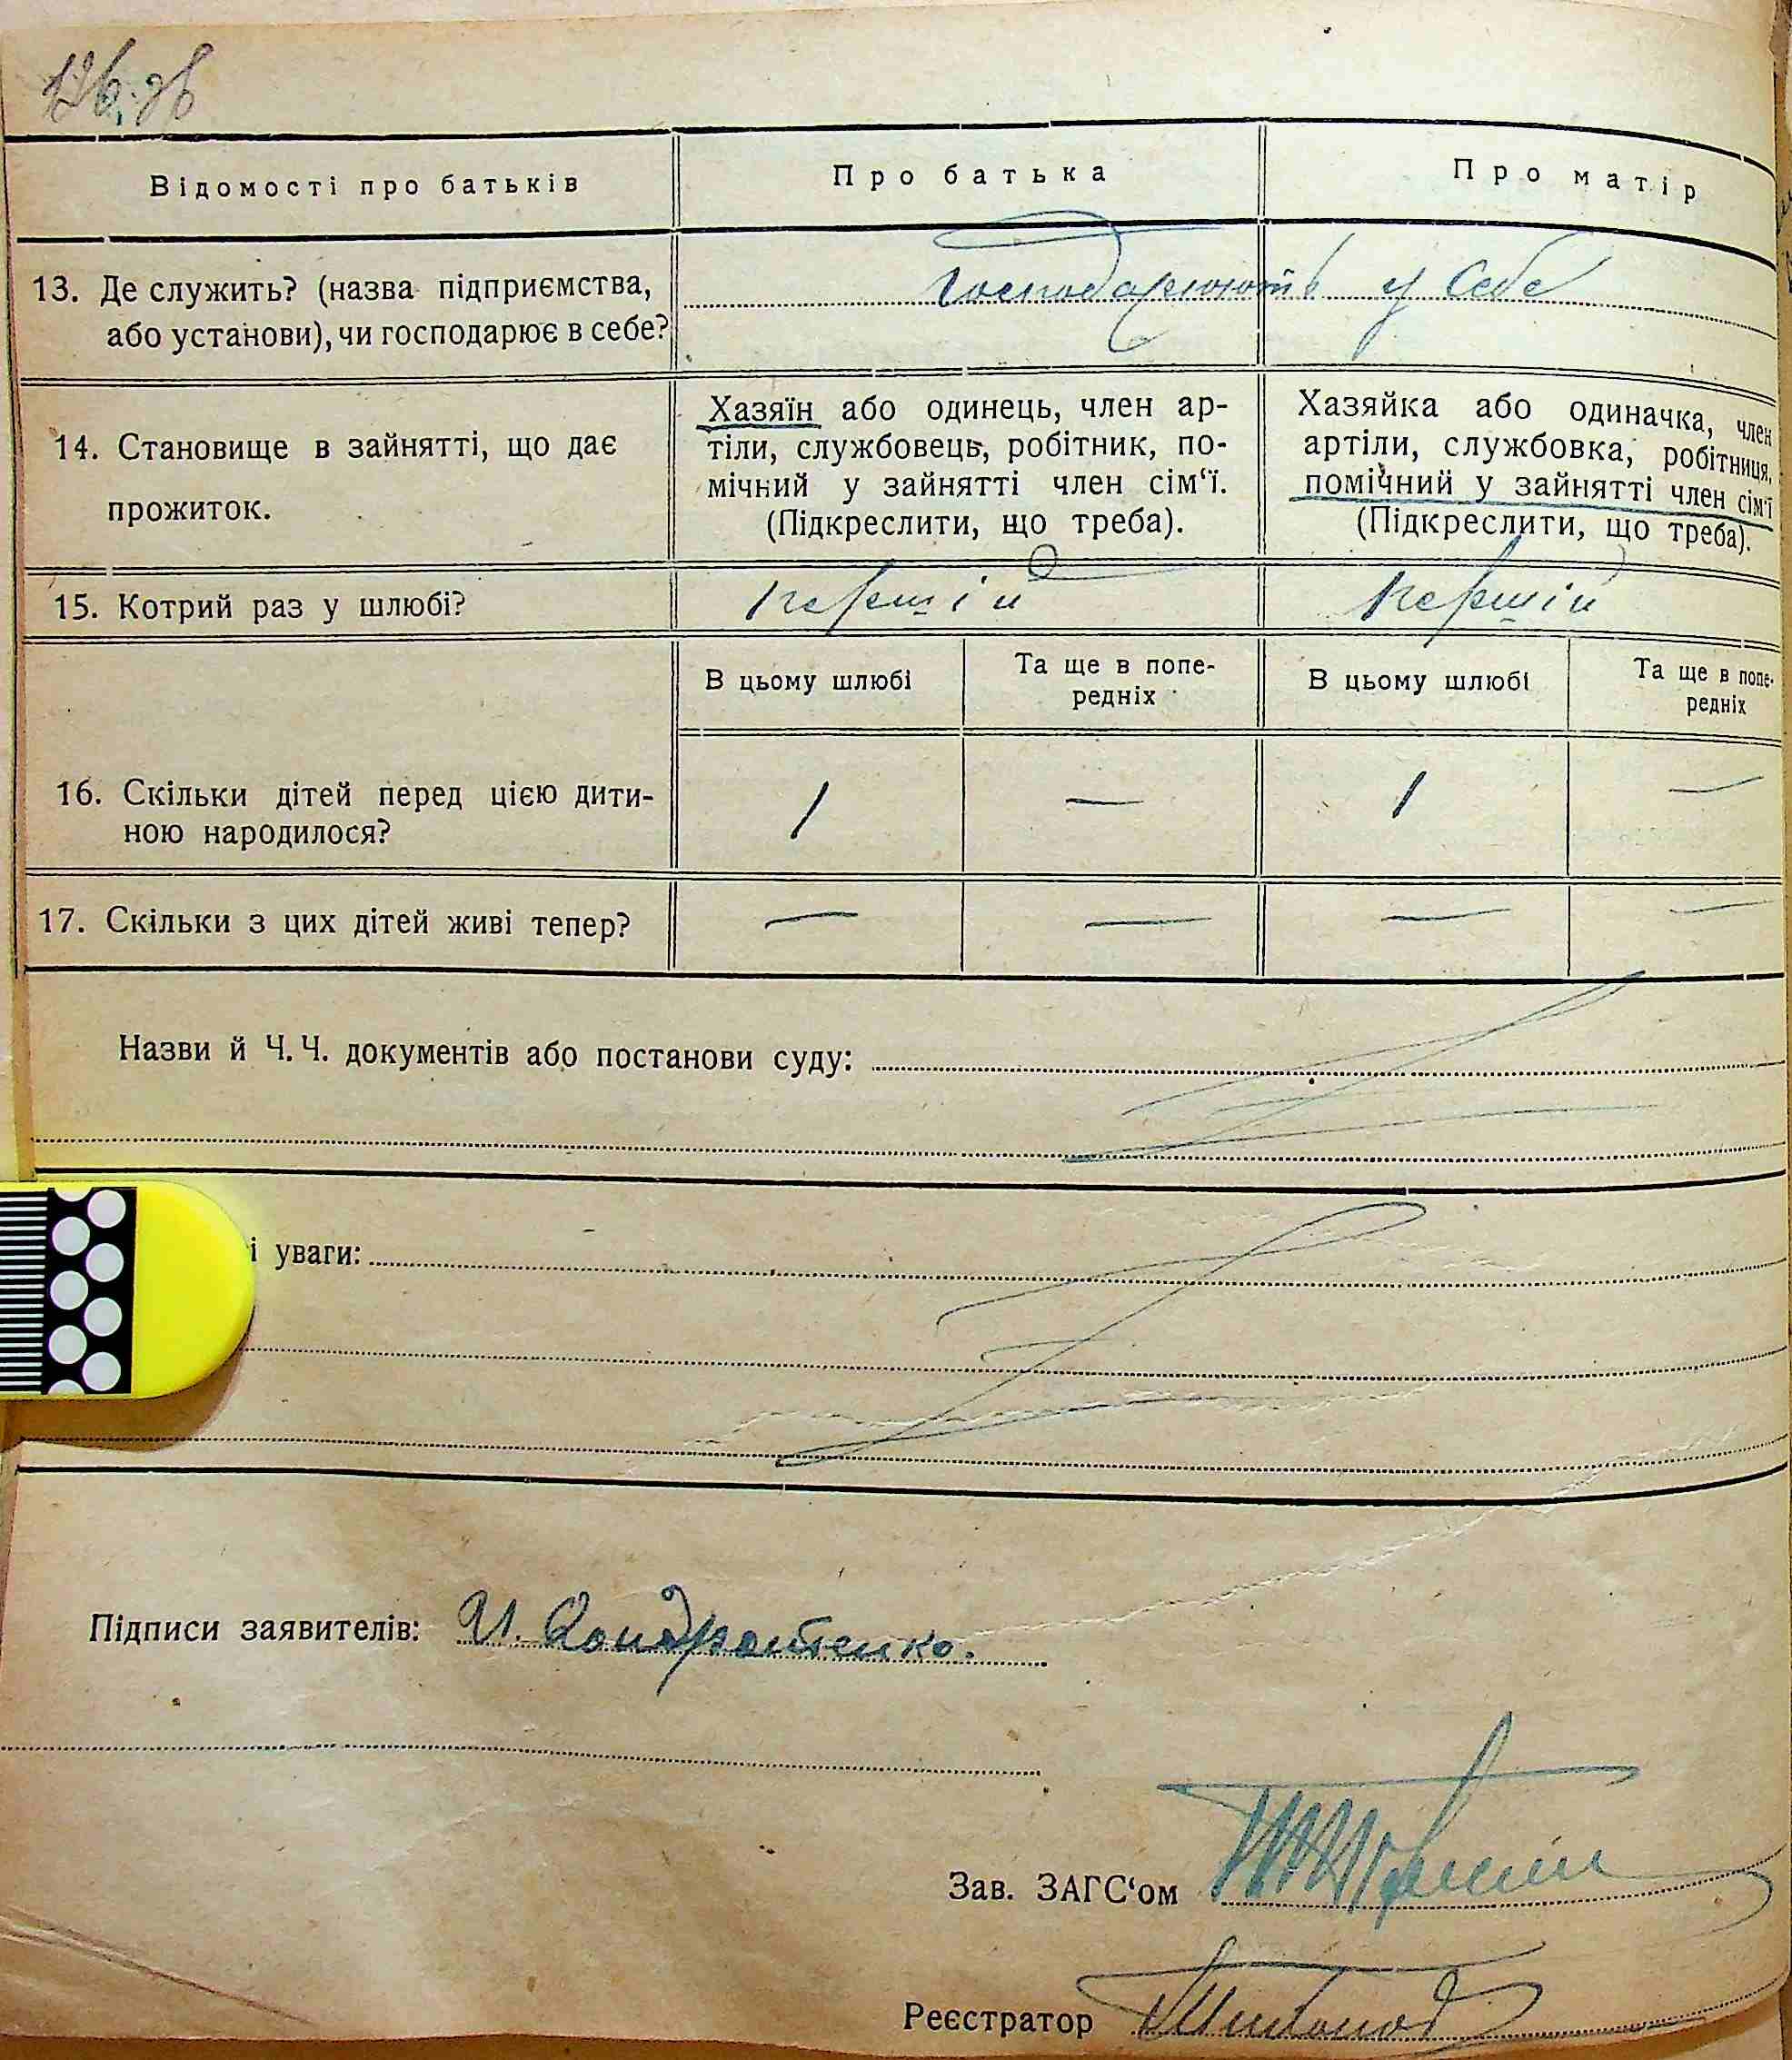 Відомості про батьків
Про батька
Про матір
13. Де служить? (назва підприємства,
або установи), чи господарює в себе?
Господарюють у себе
14. Становище в зайнятті, що дає
прожиток.
Хазяїн або одинець, член ар-
тіли, службовець, робітник, по-
мічний у зайнятті член сім‘ї.
(Підкреслити, що треба).
Хазяйка або одиначка, член
артіли, службовка, робітниця,
помічний у зайнятті член сім‘ї
(Підкреслити, що треба).
15. Котрий раз у шлюбі?
перший
перший
В цьому шлюбі
Та ще в попе-
редніх
В цьому шлюбі
Та ще в попе-
редніх
16. Скільки дітей перед цією дити-
ною народилося?
1 — 1 —
17. Скільки з цих дітей живі тепер?
— — — —
Назви й Ч. Ч. документів або постанови суду:
і уваги:
Підписи заявителів: И. Кондратенко.
Зав. ЗАГС‘ом
Реєстратор